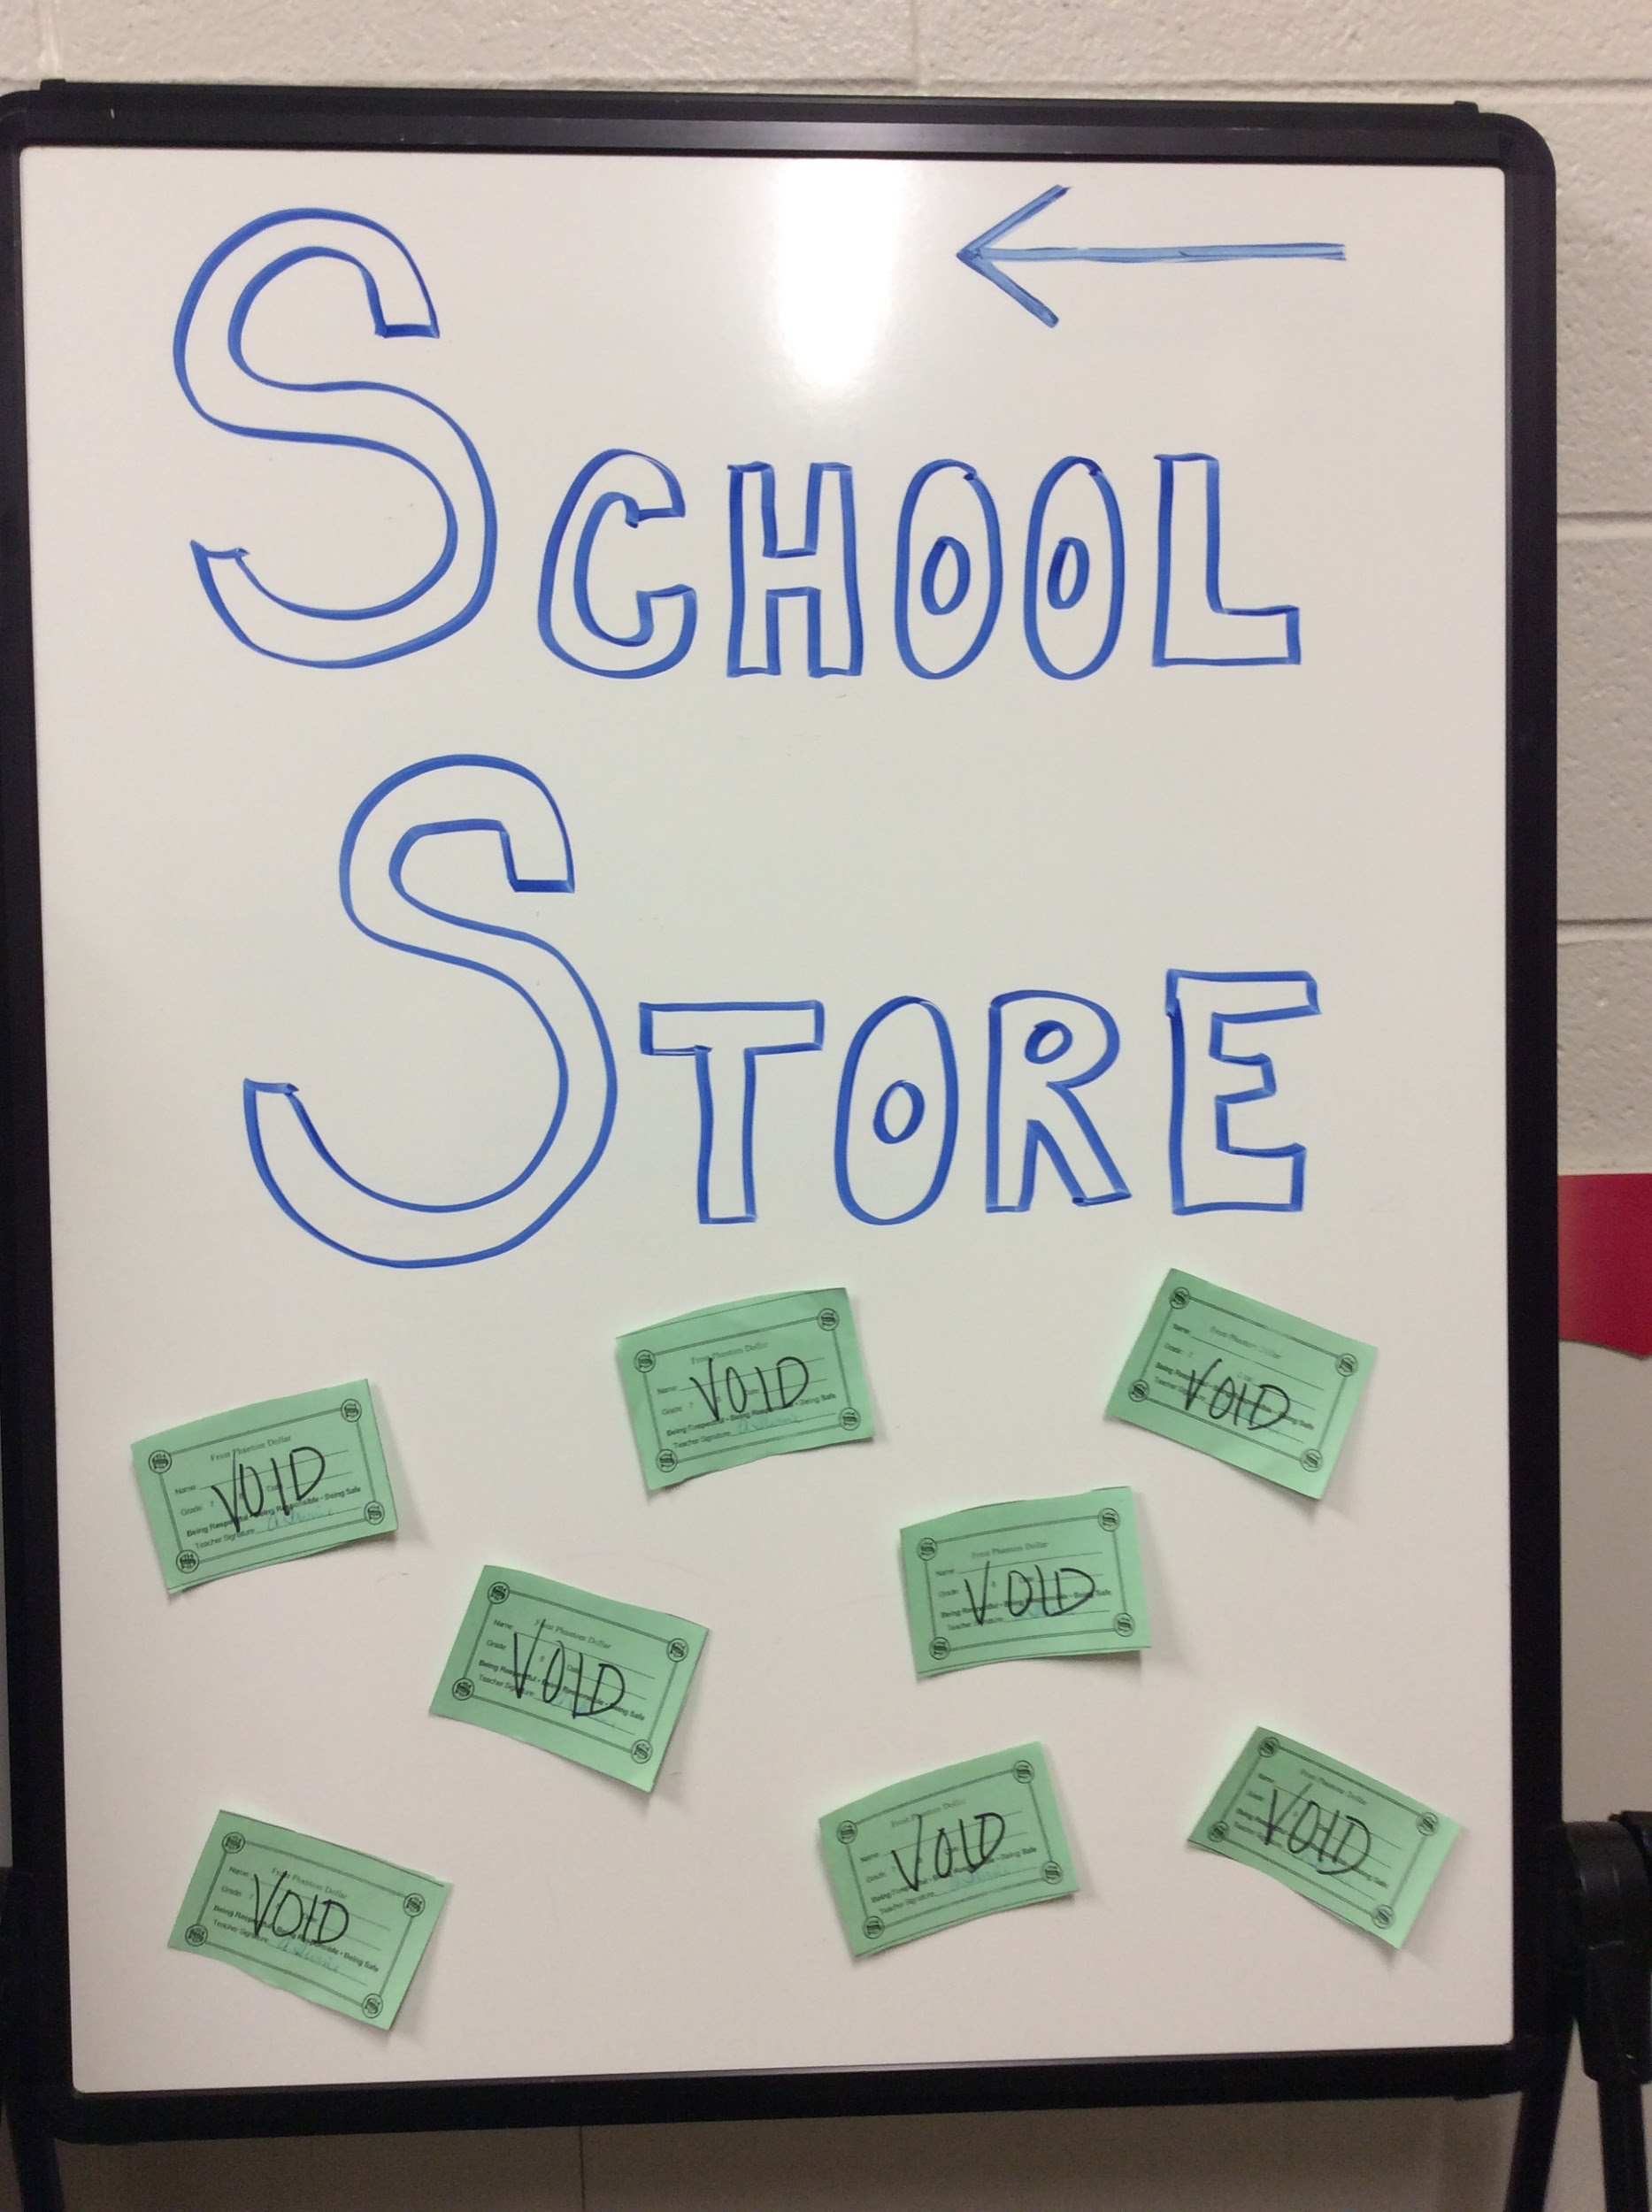 SCHOOL
STORE
Frost Phantom Dollar
Name
Grade 7 Date
VOID
Being Respectful • Being Responsible • Being Safe
Teacher Signature
Frost Phantom Dollar
Name
Grade 7
VOID
Being Respectful • Being Responsible • Being Safe
Teacher Signature
Frost Phantom Dollar
Name
Grade 7
VOID
Being Responsible • Being Safe
Teacher Signature
Frost Phantom Dollar
Name
Grade 8 Date
VOID
Being Respectful • Being Responsible • Being Safe
Teacher Signature
Frost Phantom Dollar
Name
Grade 8
VOID
Being Respectful • Being Responsible • Being Safe
Teacher Signature
Frost Phantom Dollar
Name
Grade 7
VOID
Being Respectful • Being Responsible • Being Safe
Teacher Signature
Frost Phantom Dollar
Name
Grade
VOID
Being Respectful • Being Responsible • Being Safe
Teacher Signature
Frost Phantom Dollar
Name
Grade
VOID
Being Safe
Teacher